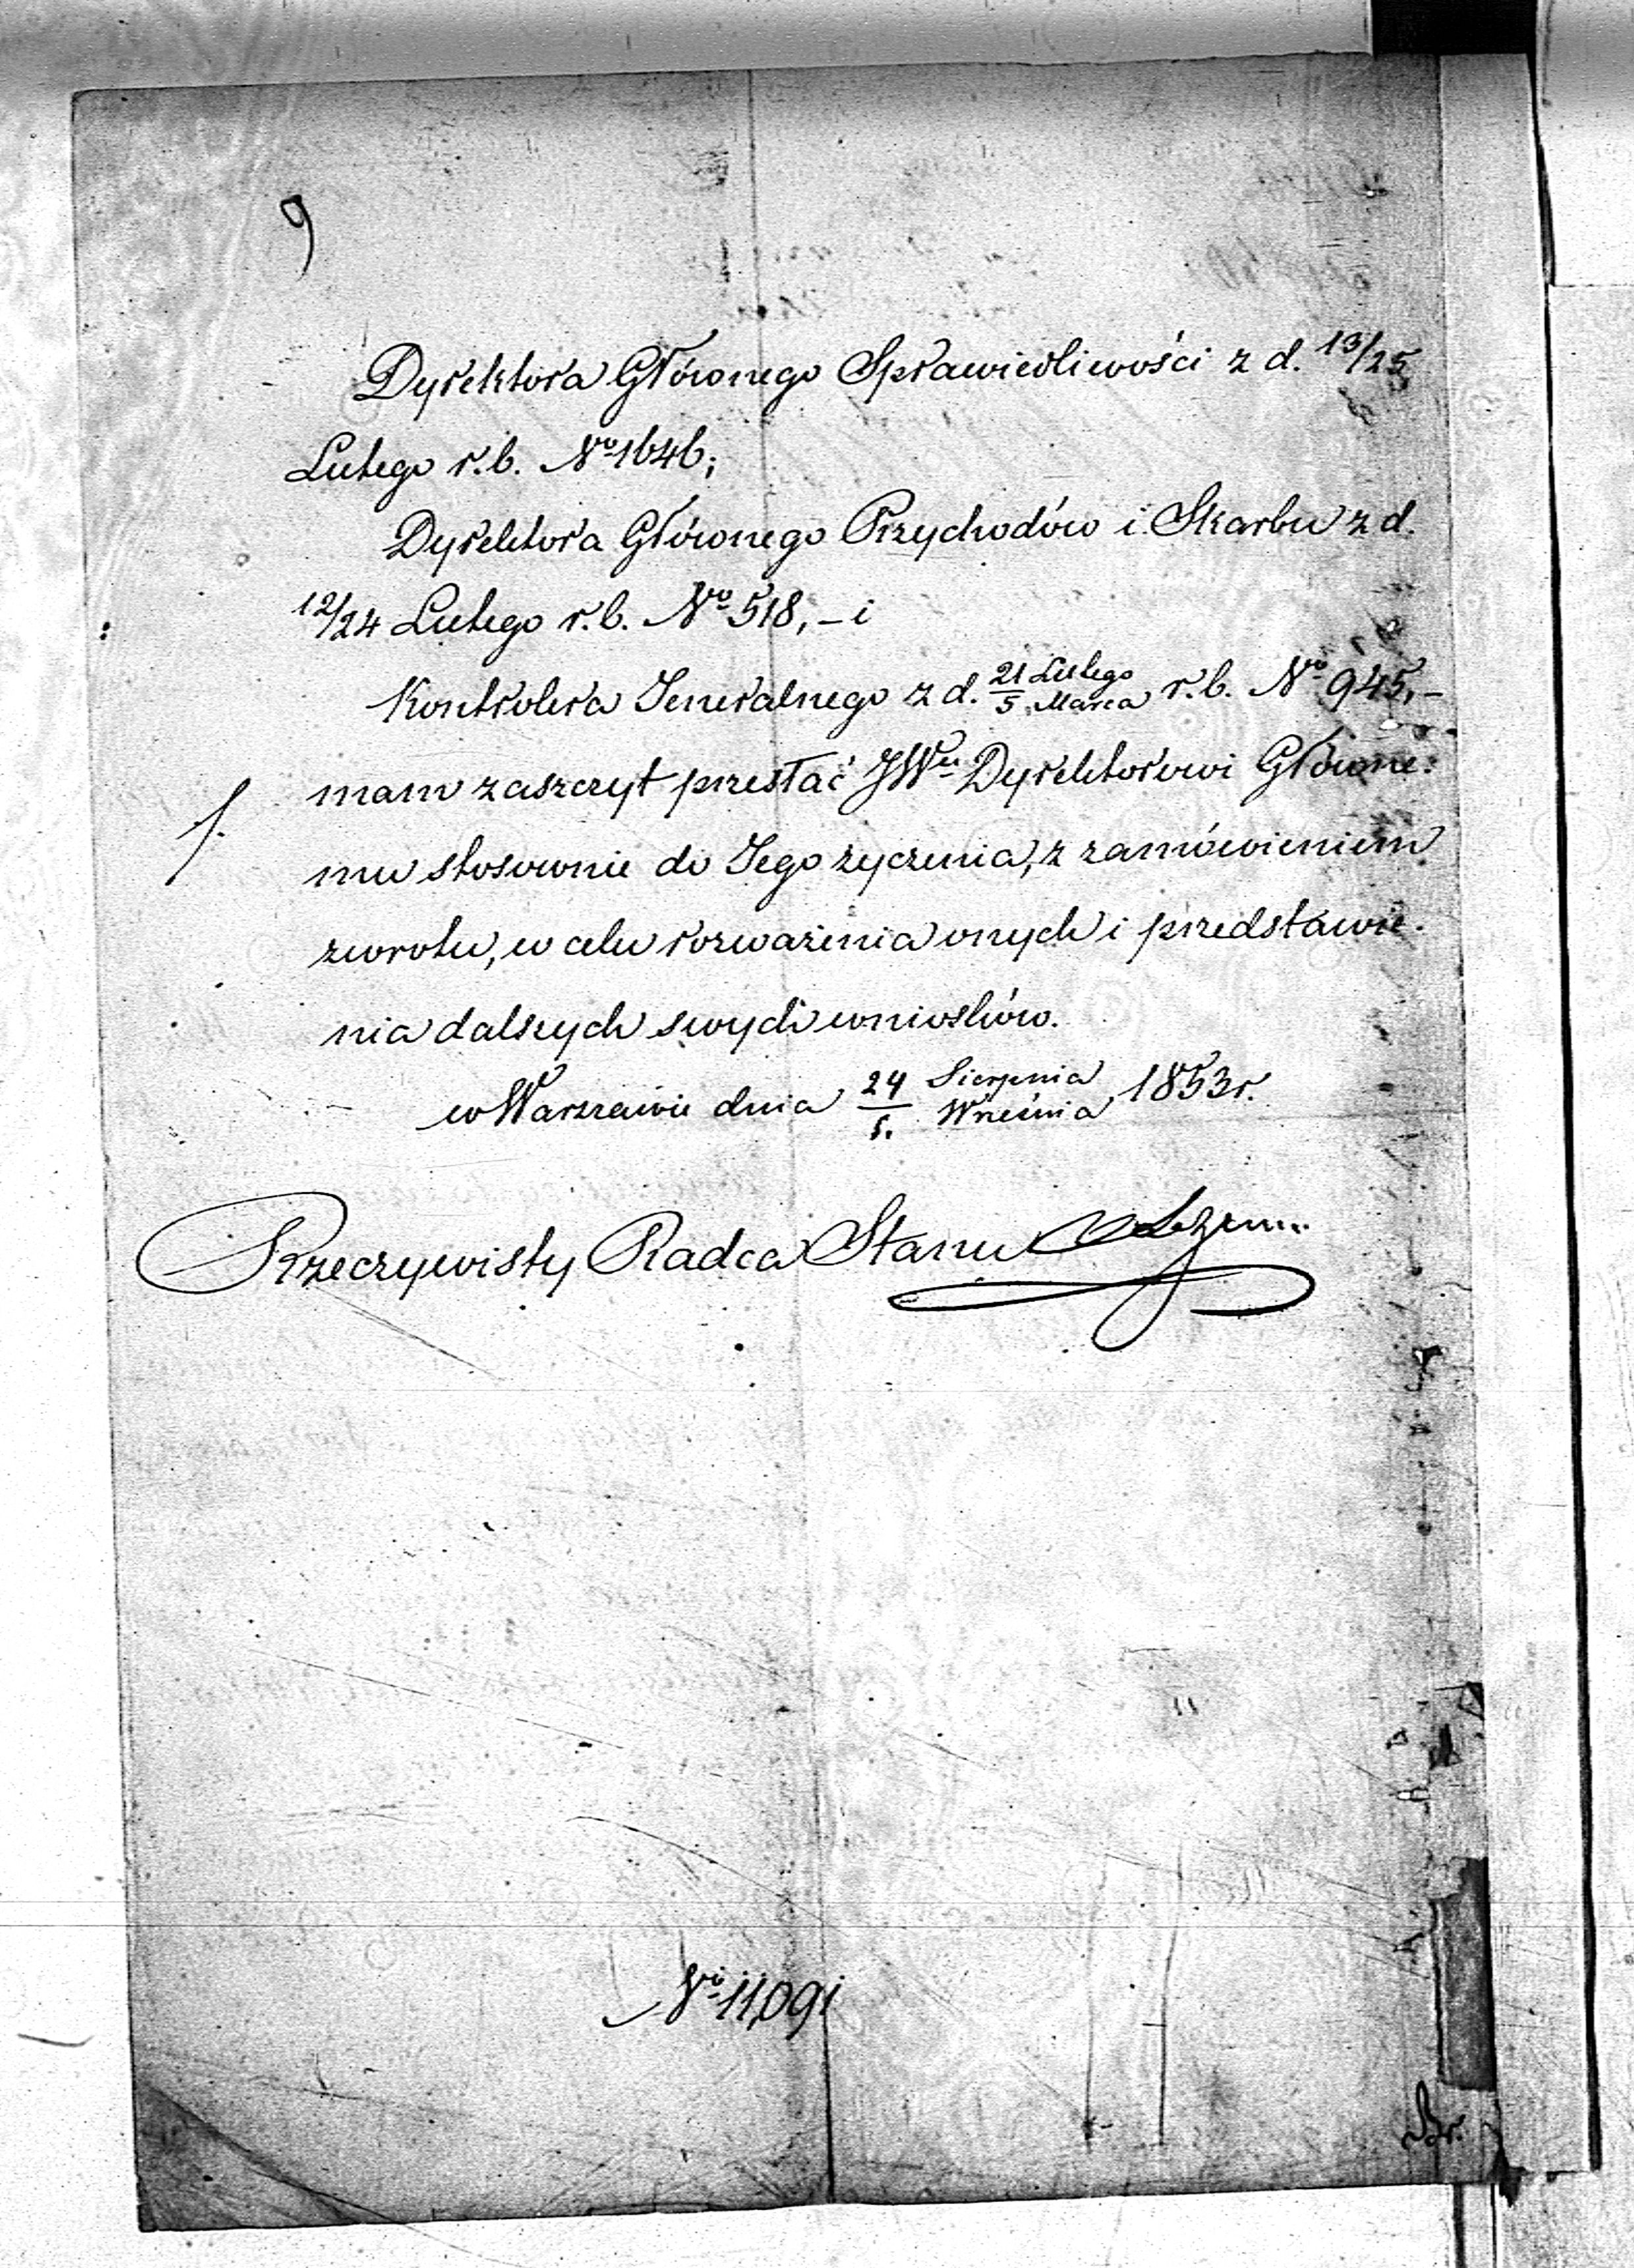 9
Dyrektora Głównego Sprawiedliwości z d. 13/25
Lutego r.b. No 1646;
Dyrektora Głównego Przychodów i Skarbu z d.
12/24 Lutego r.b. No 518, - i
Kontrolera Jeneralnego z d. 21 Lutego / 5 Marca r.b. No 945, -
mam zaszczyt przesłać JWu Dyrektorowi Główne:
mu stosownie do Jego życzenia, z zamówieniem
zwrotu, w celu rozważenia onych i przedstawie-
nia dalszych swych wniosków.
w Warszawie dnia 24 Sierpnia / 5. Września 1853 r.
Rzeczywisty Radca Stanu
No 11,091